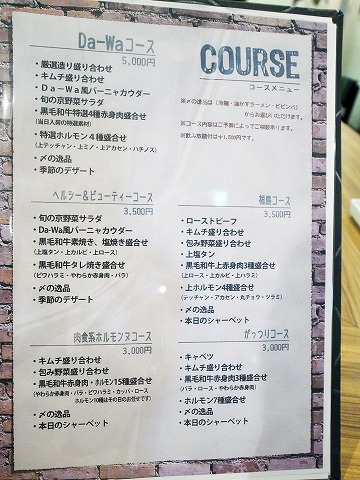 Da-Waコース
5,000円
・厳選造り盛り合わせ
・キムチ盛り合わせ
・Da-Wa風バーニャカウダー
・旬の京野菜サラダ
・黒毛和牛特選4種赤身肉盛合せ
(当日入荷の特選素材)
・特選ホルモン4種盛合せ
(上テッチャン・上ミノ・上アカセン・ハチノス)
・〆の逸品
・季節のデザート
COURSE
コースメニュー
※〆の逸品は(冷麺・油かすラーメン・ビビンバ)
からお選びいただけます。
※コース内容はご予算によってご相談承ります。
※飲み放題付は+1,500円です。
ヘルシー&ビューティーコース
3,500円
・旬の京野菜サラダ
・Da-Wa風バーニャカウダー
・黒毛和牛素焼き、塩焼き盛合せ
(上塩タン・上カルビ・上ロース)
・黒毛和牛タレ焼き盛合せ
(ビワハラミ・やわらか赤身肉・バラ)
・〆の逸品
・季節のデザート
福島コース
3,500円
・ローストビーフ
・キムチ盛り合わせ
・包み野菜盛り合わせ
・上塩タン
・黒毛和牛上赤身肉3種盛合せ
(上ロース・上カルビ・上ハラミ)
・上ホルモン4種盛合せ
(テッチャン・アカセン・丸チョウ・ツラミ)
・〆の逸品
・本日のシャーベット
肉食系ホルモンヌコース
3,000円
・キムチ盛り合わせ
・包み野菜盛り合わせ
・黒毛和牛赤身肉・ホルモン15種盛合せ
(やわらか赤身肉・バラ・ビワハラミ・カッパ・ロース
ホルモン10種はその日のお任せです)
・〆の逸品
・本日のシャーベット
がっつりコース
3,000円
・キャベツ
・キムチ盛り合わせ
・黒毛和牛赤身肉3種盛合せ
(バラ・ロース・やわらか赤身肉)
・ホルモン7種盛合せ
・〆の逸品
・本日のシャーベット